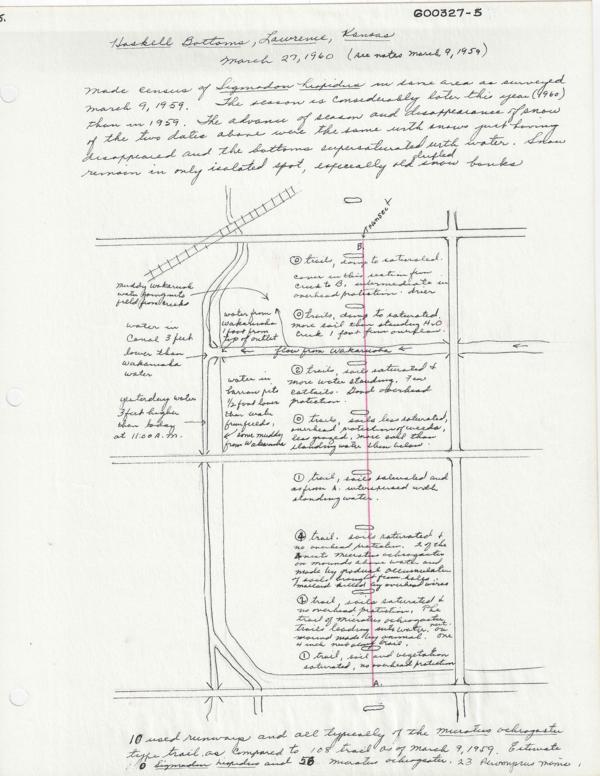 5.
GOO327-5
Haskell Bottoms, Lawrence, Kansas
March 27, 1960 (see notes March 9, 1959)
Made census of Sigmodon hispidus in same area as surveyed
March 9, 1959. The season is considerably later this year (1960)
than in 1959. The advance of season and disappearance of snow
of the two dates above were the same with snows just having
disappeared and the bottoms supersaturated with water. Snow
remain in only isolated spot, especially old drifted snow banks
transect
B.
⓪ trails, damp to saturated.
cover in this section from
creek to B, intermediate in
overhead protection. drier
muddy Wakarusa
water going into
field from creeks
water from
Wakarusa
1 foot from
top of outlet
⓪ trails, damp to saturated,
more soil than standing H2O
Creek 1 foot from overflow.
water in
Canal 3 feet
lower than
Wakarusa
water
← flow from Wakarusa ←
② trails, soils saturated &
more water standing. Few
cattails. Good overhead
protection.
water in
barrow pits
½ foot lower
than water
from fields,
& some muddy
from Wakarusa
yesterday water
3 feet higher
than today
at 11:00 A.M.
⓪ trails, soils less saturated,
overhead protection of weeds,
less grazed, more soil than
standing water then below.
① trail, soils saturated and
as from A. interspersed with
standing water.
④ trail. soils saturated &
no overhead protection. 2 of the
nests Microtus ochrogaster
on mounds above water and
made by gradual accumulation
of soils brought from holes.
mallard killed by overhead wires
trail, soils saturated &
no overhead protection. The
trail of Microtus ochrogaster
trails leading into water. nest on
mound made by animal. one
4 inch trail.
① trail, soil and vegetation
saturated, no overhead protection
A.
10 used runways and all typically of the Microtus ochrogaster
type trail as compared to 108 trail as of March 9, 1959. Estimate
0 Sigmodon hispidus and 50 Microtus ochrogaster. 23